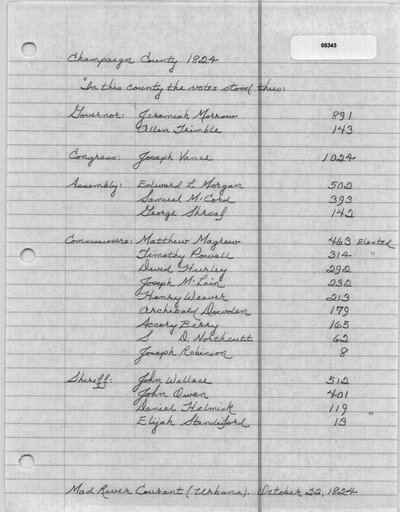 05343
Champaign County 1824
"In this county the votes stood thus:
Governor: Jeremiah Morrow 891
Allen Trimble 143
Congress: Joseph Vance 1024
Assembly: Edward L. Morgan 502
Samuel McCord 393
George Shroaf 142
Commissioners: Matthew Magrew 463 Elected
Timothy Powell 314 "
David Hurley 292
Joseph McLain 232
Henry Weaver 213
Archibald Dowden 179
Accory Berry 165
S D. Northcutt 62
Joseph Robinson 8
Sheriff: John Wallace 512
John Owen 401
Daniel Helmick 119 "
Elijah Standiford 13
Mad River Courant (Urbana). October 22, 1824